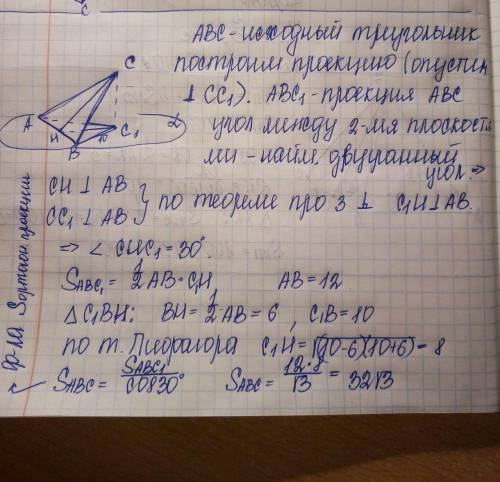 C
ABC - исходный треугольник
построим проекцию (опустим
⊥ CC₁). ABC₁ - проекция ABC
угол между 2-мя плоскостя
ми - найм. двугранный
угол. ⇒
C
A
H
B
C₁
α
CH ⊥ AB
CC₁ ⊥ AB } по теореме про 3 ⊥ C₁H ⊥ AB.
⇒ ∠ CHC₁ = 30°.
S_ABC₁ = 1/2 AB · C₁H, AB = 12
Δ C₁BH: BH = 1/2 AB = 6, C₁B = 10
по т. Пифагора C₁H = √(10-6)(10+6) = 8
S_ABC = S_ABC₁/cos30° S_ABC = 12·8/√3 = 32√3
ф-ла S ортогон. проекции